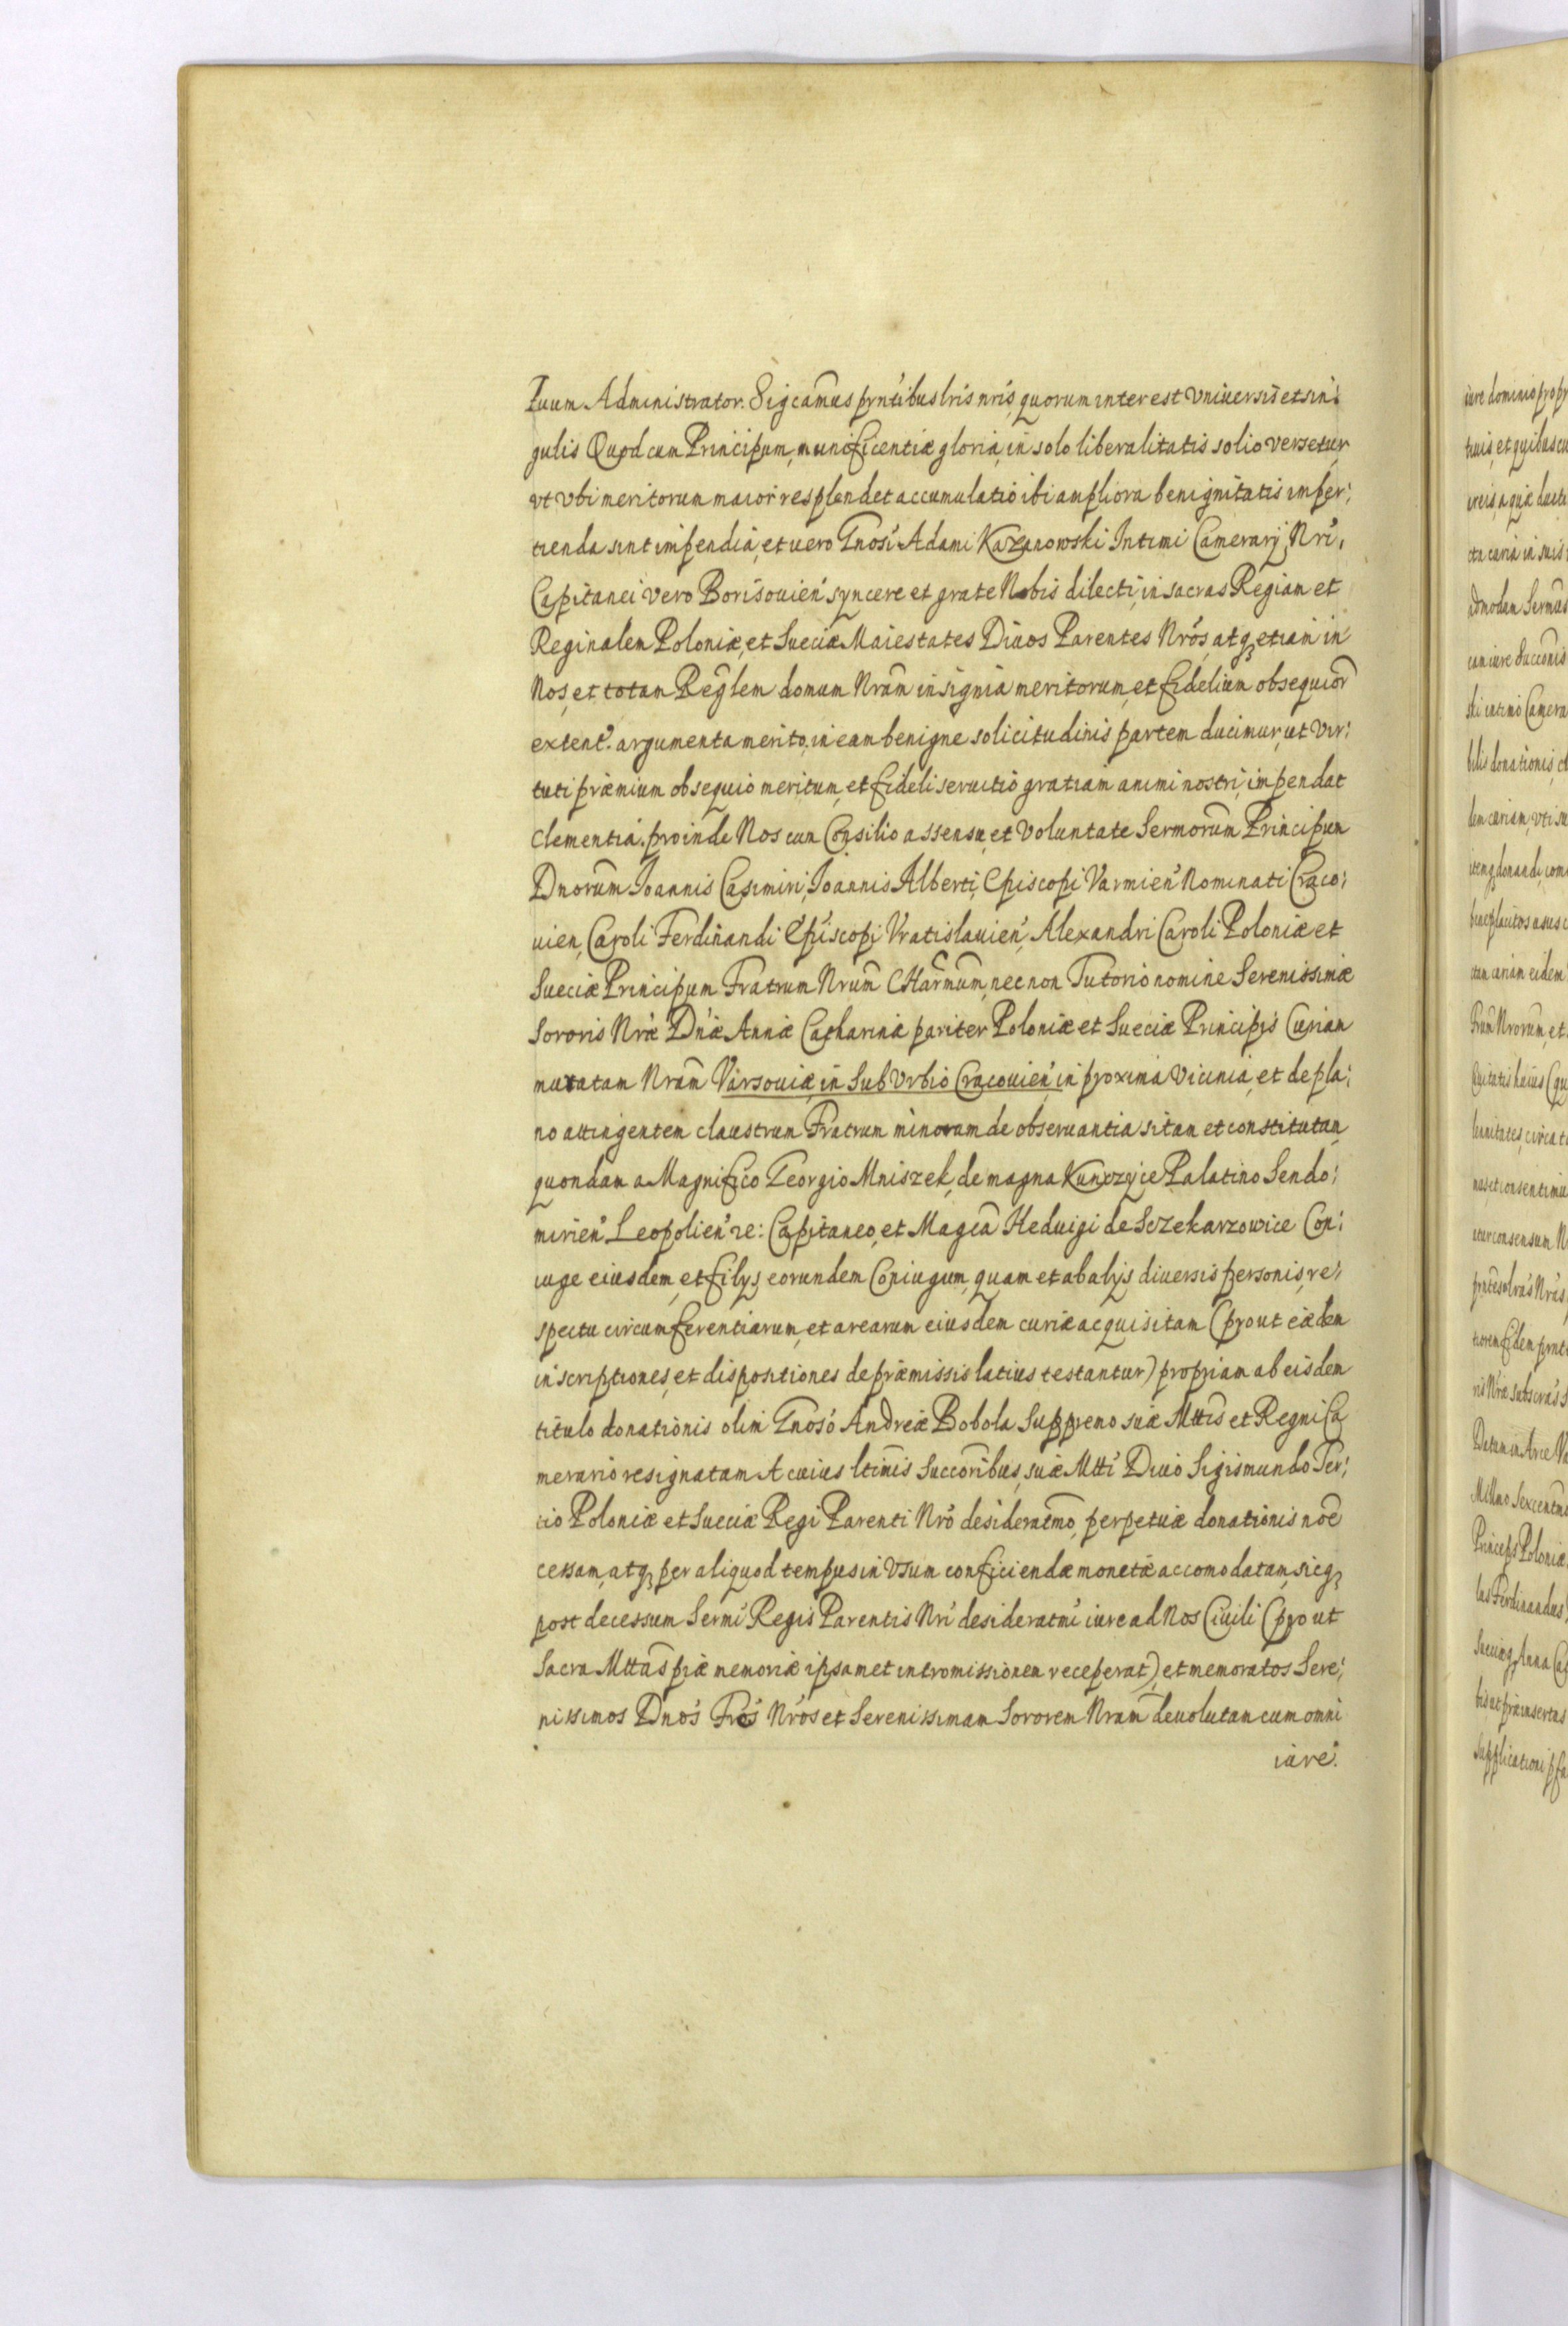 tuum Administrator. Sigcamus pñtibus lris nris, quorum interest vniuersis et sin:
gulis Quod cum Principum, munificentiæ gloria, in solo liberalitatis solio versetur,
vt vbi meritorum maior resplendet accumulatio ibi ampliora benignitatis imper:
tienda sint impendia, et uero Gnosi Adami Kazanowski Intimi Camerarij Nri,
Capitanei vero Borisouien syncere et grate Nobis dilecti, in sacras Regiam et
Reginalem Poloniæ, et Sueciæ Maiestates Diuos Parentes Nros, atq etiam in
Nos, et totam Reglem domum Nram insignia meritorum, et fidelium obsequior
extent. argumenta merito, in eam benigne solicitudinis partem ducimur, ut vir:
tuti præmium obsequio meritum, et fideli seruitio gratiam animi nostri, impendat
clementia. proinde Nos cum Consilio assensu, et voluntate Sermorum Principum
Dnorum Joannis Casimiri, Joannis Alberti, Episcopi Varmien Nominati Craco:
uien, Caroli Ferdinandi Episcopi Vratislauien, Alexandri Caroli Poloniæ et
Sueciæ Principum Fratrum Nrum CHarmum, nec non Tutorio nomine Serenissimæ
Sororis Nræ Dnæ Annæ Catharinæ pariter Poloniæ et Sueciæ Principis Curiam
muratam Nram Varsouiæ, in SubVrbio Cracouien, in proxima vicinia, et de pla:
no attingentem claustrum Fratrum minorum de obseruantia sitam et constitutam
quondam a Magnifico Georgio Mniszek, de magna Kunczyce Palatino Sendo:
mirien Leopolien re: Capitaneo, et Magca Heduigi de Sczekarzowice Con:
iuge eiusdem, et filys, eorundem Coniugum, quam et ab alys diuersis personis, re:
spectu circumferentiarum, et arearum eiusdem curiæ acquisitam (prout eædem
inscriptiones, et dispositiones de præmissis latius testantur) propriam ab eisdem
titulo donationis olim Gnoso Andreæ Bobola Suppremo suæ Mttis et Regni Ca
merario resignatam A cuius ltimis Succoribus, suæ Mtti Diuo Sigismundo Ter:
tio Poloniæ et Sueciæ Regi Parenti Nro desideratmo, perpetuæ donationis noe
cessam, atq per aliquod tempus in vsum conficiendæ monetæ accomodatam, sicq
post decessum Sermi Regis Parentis Nri desideratmi iure ad Nos Ciuili (prout
Sacra Mttas piæ memoriæ ipsamet intromissionem receperat), et memoratos Sere:
nissimos Dnos Fres Nros et Serenissimam Sororem Nram deuolutam cum omni
iure.